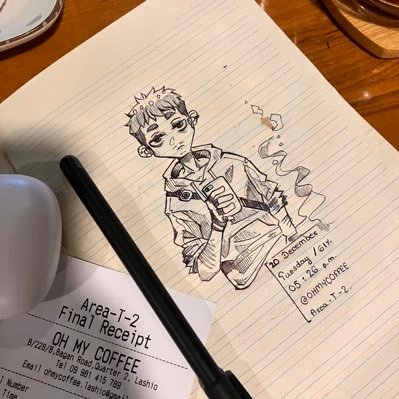 20 December
Tuesday / 61%
05:26 p.m.
@OHMYCOFFEE
Area-T-2
Area-T-2
Final Receipt
OH MY COFFEE
B/228/8,Bagan Road,Quarter 2, Lashio
Tel 09 881 415 789
Email ohmycoffee.lashio@gmail
l Number
Time